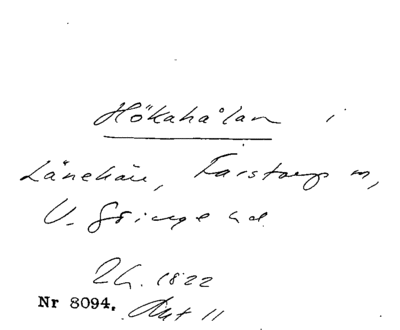 Hökahålan i
Lånehäu, Farstorp m,
V. Göinge hd.
Nr 8094. Akt 11